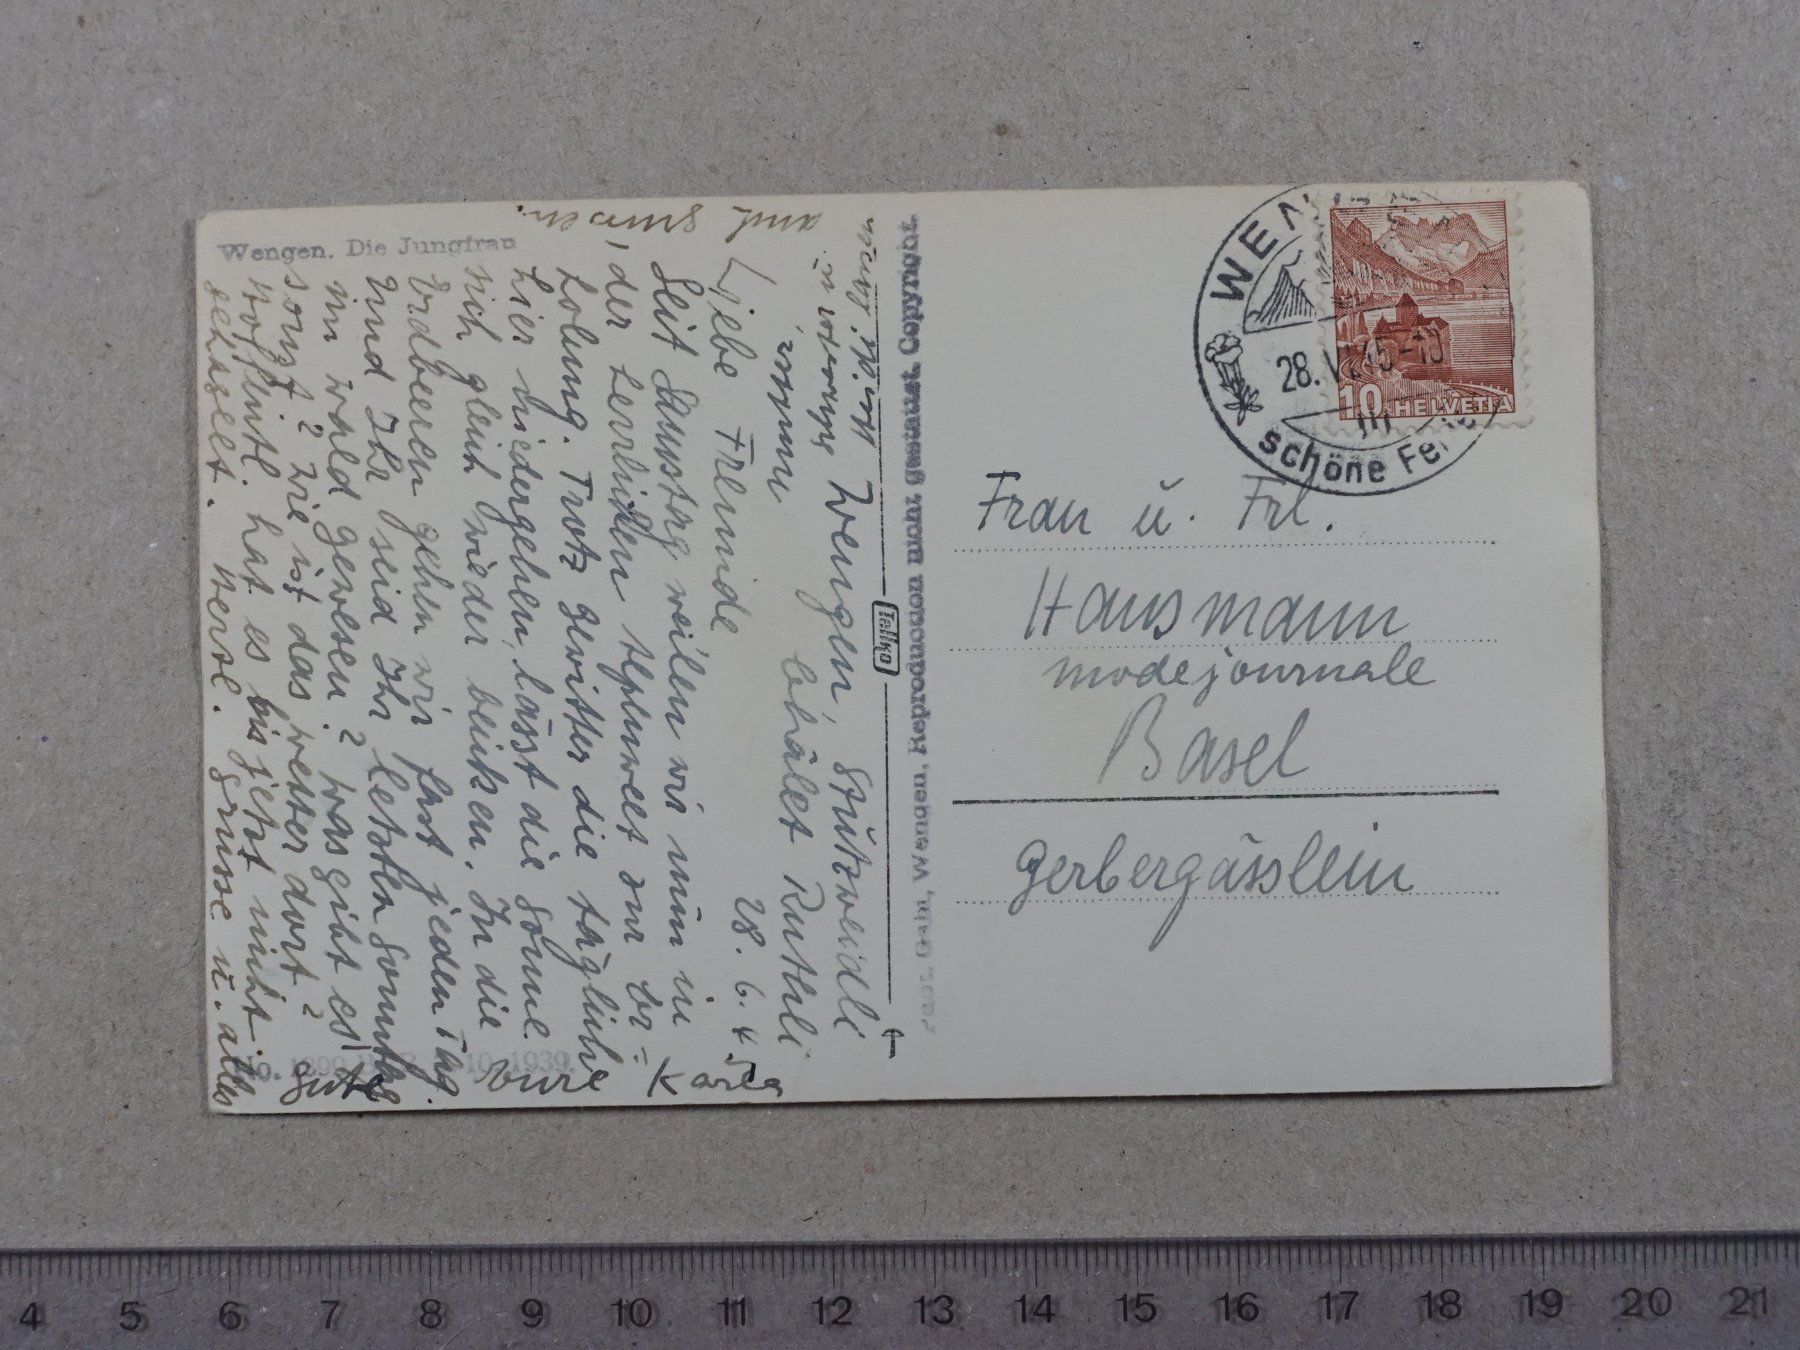 Wengen. Die Jungfrau
Wengen, Stützweidli
Châlet Ruthli
28. 6. 45
Liebe Freunde
Seit Samstag weilen wir nun in
der herrlichen Alpenwelt zur Er=
holung. Trotz Gewitter die täglich
hier niedergehen, lässt die Sonne
sich gleich wieder blicken. In die
Erdbeeren gehen wir fast jeden Tag.
Und Ihr seid Ihr letzten Sonntag
im Wald gewesen? Was gibt es
sonst? Wie ist das Wetter dort?
Hoffentl. hat es bis jetzt nicht
gehagelt. Herzl. Grüsse u. alles
gute
Eure Karla
auch grüssen.
Tellko
Gabi, Wengen, Reproduction nicht gestattet. Copyright.
10. 1939.
WEN
28. VI. 45 - 10
schöne Fe
10 HELVETIA
Frau u. Frl.
Hausmann
Modejournale
Basel
Gerbergässlein
4 5 6 7 8 9 10 11 12 13 14 15 16 17 18 19 20 21